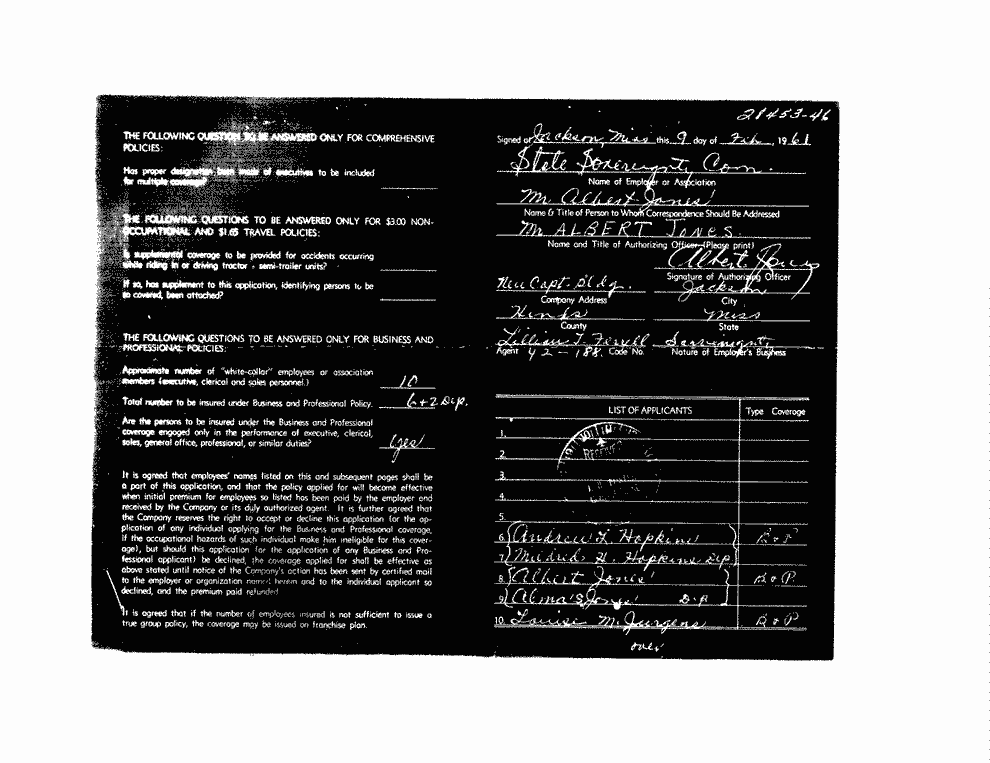 28453-46
THE FOLLOWING QUESTION TO BE ANSWERED ONLY FOR COMPREHENSIVE
POLICIES:
Has proper designation been made of executives to be included
for multiple coverage?
THE FOLLOWING QUESTIONS TO BE ANSWERED ONLY FOR $3.00 NON-
OCCUPATIONAL AND $1.65 TRAVEL POLICIES:
Is supplemental coverage to be provided for accidents occurring
while riding in or driving tractor - semi-trailer units?
If so, has supplement to this application, identifying persons to be
so covered, been attached?
THE FOLLOWING QUESTIONS TO BE ANSWERED ONLY FOR BUSINESS AND
PROFESSIONAL POLICIES:
Approximate number of "white-collar" employees or association
members (executive, clerical and sales personnel.) 10
Total number to be insured under Business and Professional Policy. 6+2 Dep.
Are the persons to be insured under the Business and Professional
coverage engaged only in the performance of executive, clerical,
sales, general office, professional, or similar duties? yes
It is agreed that employees' names listed on this and subsequent pages shall be
a part of this application, and that the policy applied for will become effective
when initial premium for employees so listed has been paid by the employer and
received by the Company or its duly authorized agent. It is further agreed that
the Company reserves the right to accept or decline this application (or the ap-
plication of any individual applying for the Business and Professional coverage,
if the occupational hazards of such individual make him ineligible for this cover-
age), but should this application (or the application of any Business and Pro-
fessional applicant) be declined, the coverage applied for shall be effective as
above stated until notice of the Company's action has been sent by certified mail
to the employer or organization named herein and to the individual applicant so
declined, and the premium paid refunded.
It is agreed that if the number of employees insured is not sufficient to issue a
true group policy, the coverage may be issued on franchise plan.
Signed at Jackson, Miss this 9 day of Feb, 1961
State Sovereignty Com.
Name of Employer or Association
Mr. Albert Jones
Name & Title of Person to Whom Correspondence Should Be Addressed
Mr ALBERT JONES
Name and Title of Authorizing Officer (Please print)
Albert Jones
Signature of Authorizing Officer
New Capt. Bldg. Jackson
Company Address City
Hinds Miss
County State
Lillian T. Ferrell Sovereignty
Agent 42-188 Code No. Nature of Employer's Business
LIST OF APPLICANTS Type Coverage
1.
2.
RECEIVED
3.
4.
5.
6. Andrew L. Hopkins B & P
7. Mildred H. Hopkins Dep
8. Albert Jones B & P
9. Alma S. Jones Dep
10. Louise M. Jurgens B & P
over